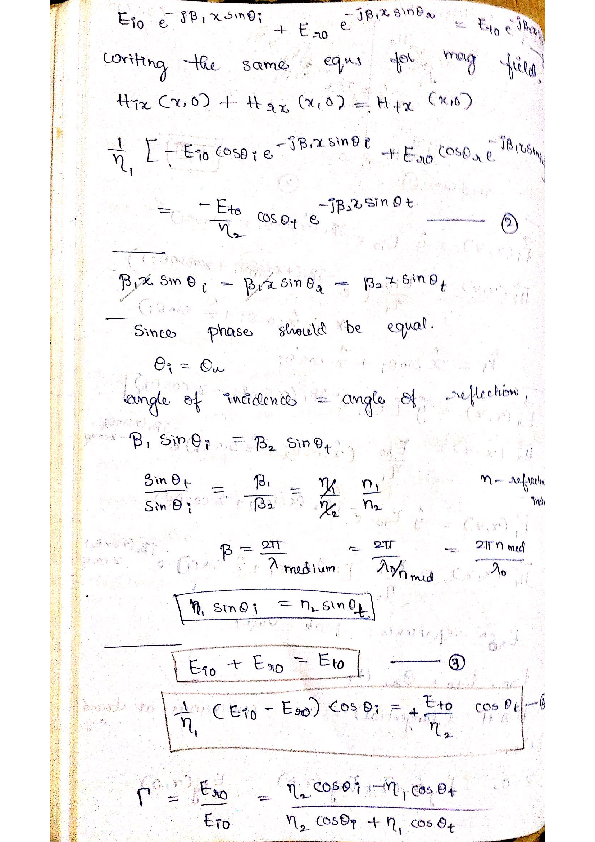 E_i0 e^{-jβ_1 x sinθ_i} + E_r0 e^{-jβ_1 x sinθ_r} = E_t0 e^{-jβ_2
writing the same equs for mag field,
H_ix (x,0) + H_rx (x,0) = H_tx (x,0)
1/η_1 [ -E_i0 cosθ_i e^{-jβ_1 x sinθ_i} + E_r0 cosθ_r e^{-jβ_1 x sin
= -E_t0/η_2 cosθ_t e^{-jβ_2 x sinθ_t} —— ②
β_1 x sinθ_i = β_1 x sinθ_r = β_2 x sinθ_t
Since phase should be equal.
θ_i = θ_r
angle of incidence = angle of reflection,
β_1 sinθ_i = β_2 sinθ_t
sinθ_t / sinθ_i = β_1/β_2 = n_1/n_2 n -
β = 2π/λ medium = 2π/(λ_0/n med) = 2π n med/λ_0
n_1 sinθ_i = n_2 sinθ_t
E_i0 + E_r0 = E_t0 —— ③
1/η_1 (E_i0 - E_r0) cosθ_i = + E_t0/η_2 cosθ_t —
Γ = E_r0/E_i0 = (η_2 cosθ_i - η_1 cosθ_t)/(η_2 cosθ_i + η_1 cosθ_t)